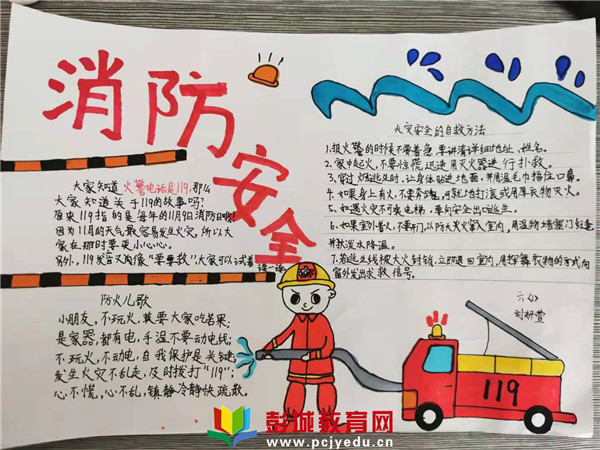 消防安全
大家知道火警电话是119,那么
大家知道关于119的故事吗?
原来119指的是每年的11月9日消防日啊!
因为11月的天气最容易发生火灾,所以大
家在那时要更小心心。
另外,119发音又有像"要要救",大家可以试着读一读。
防火儿歌
小朋友,不玩火,其要大家吃苦果;
是家器,都有电,手湿不要动电线;
不玩火,不动电,自我保护是关键
发生火灾不乱走,及时拨打"119";
心不慌,心不乱,镇静冷静快疏散。
火灾安全的自救方法
1.报火警的时候不要着急,要讲清详细地址,姓名。
2.家中起火,不要惊慌迅速用灭火器进行扑救。
3.穿过烟逃生时,让身体贴近地面,并用湿毛巾捂住口鼻。
4.如果身上有火,不要奔跑,可就地打滚或用厚衣物灭火。
5.如遇火灾不可乘电梯,要向安全出口逃生。
6.如果室外着火,不要开门,以防大火窜入室内,用湿物堵塞门缝
并泼水降温。
7.若逃生线被大火封锁,立即退回室内,用挥舞衣物的方式向
窗外发出求救信号。
六
119
彭城教育网
www.pcjyedu.cn